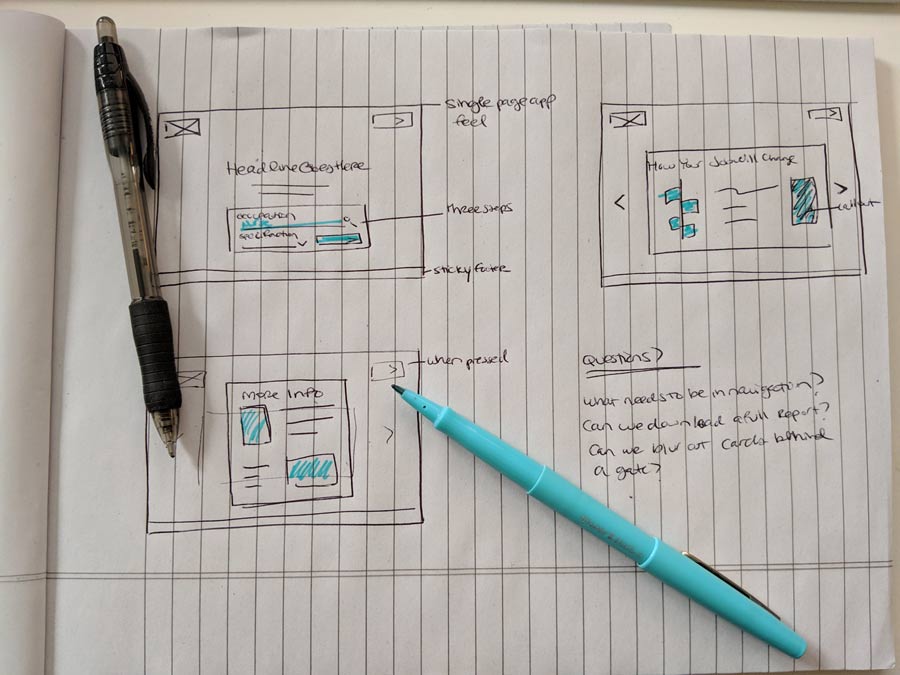 Single page app
feel
Headline Goes Here
occupation
three steps
sticky footer
How Your Job Will Change
callout
when pressed
More Info
Questions?
what needs to be in navigation?
Can we download a full report?
Can we blur out cards behind
a gate?